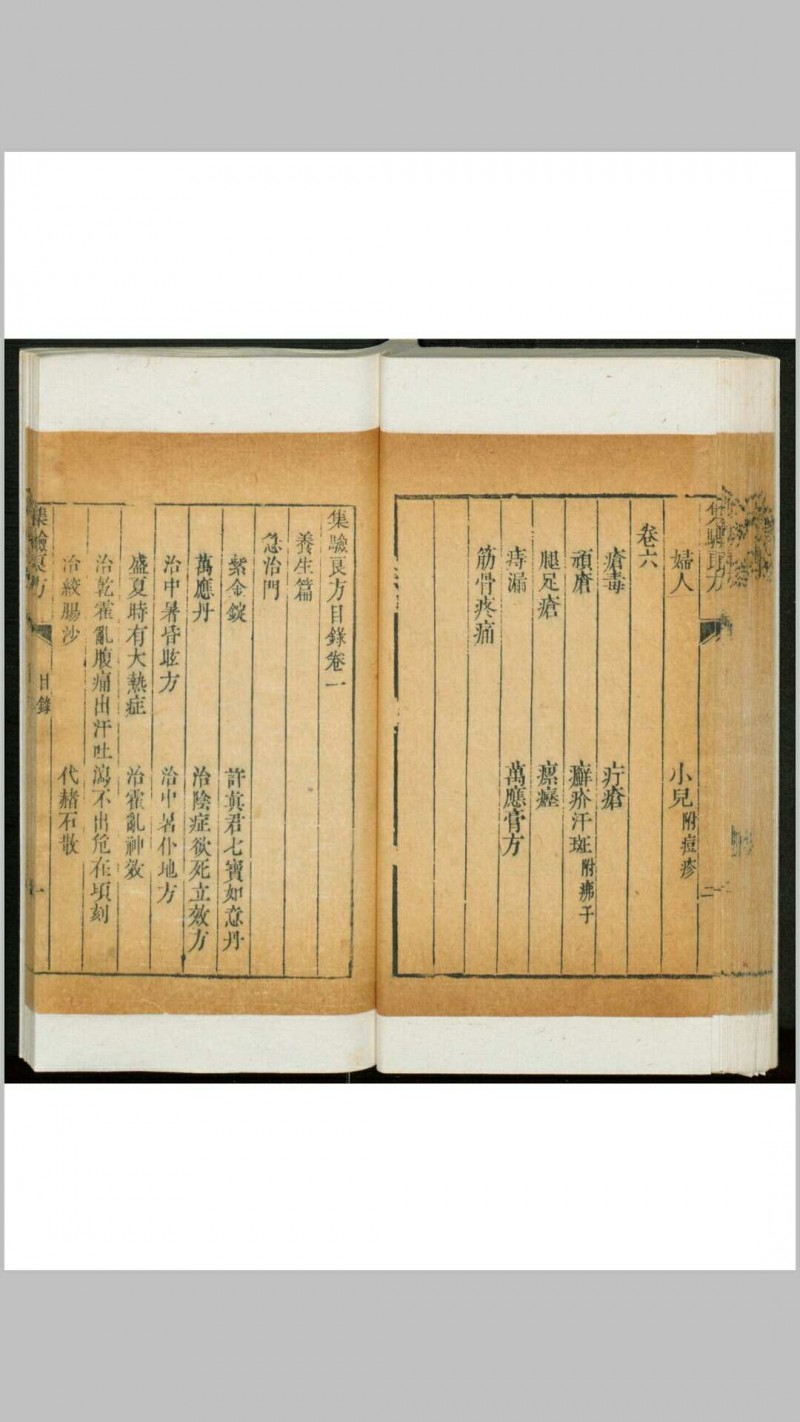 集驗良方
二
婦人 小兒附痘疹
卷六
瘡毒 疔瘡
頑瘡 癬疥汗斑附痱子
腿足瘡 瘰癧
痔漏 萬應膏方
筋骨疼痛
集驗良方目錄卷一
養生篇
急治門
紫金錠 許真君七寶如意丹
萬應丹 治陰症欲死立效方
治中暑昏眩方 治中暑仆地方
盛夏時有大熱症 治霍亂神效
治乾霍亂腹痛出汗吐瀉不出危在頃刻
治絞腸沙 代赭石散
集驗良方 目錄 一